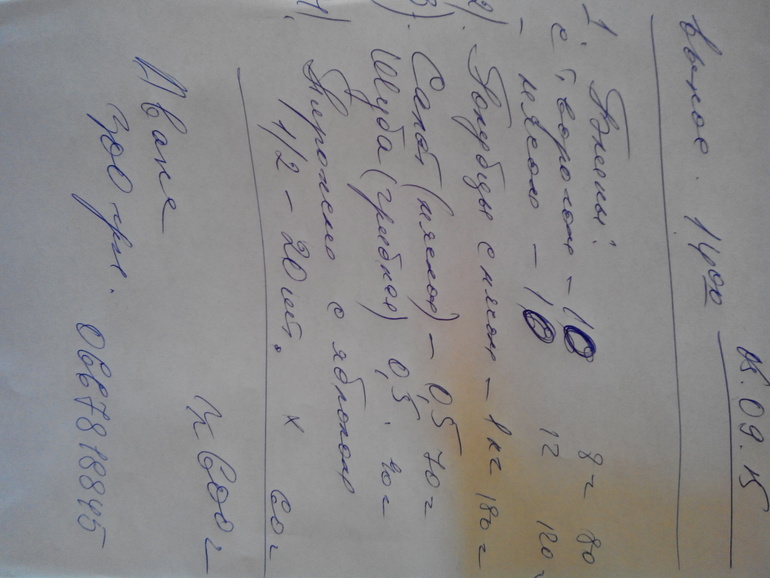 05.09.15
Вынос. 14 00
1. Блины:
с творогом - 10 8 = 80
- мясом - 10 12 120
2). Голубцы с мясом - 1 кг 180 =
3). Салат (мясной) - 0,5 70 =
Шуба (грибная) 0,5. 40 =
Пирожено с яблоком
1/2 - 20 шт. x 60 =
Аванс
300 грн. 0667818845